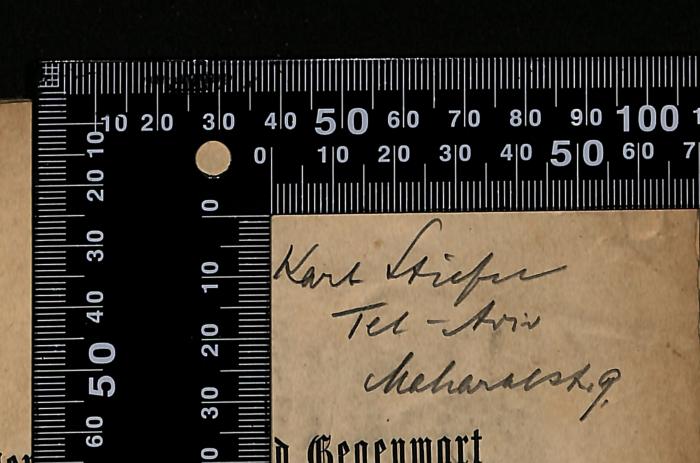 10 20 30 40 50 60 70 80 90 100 1
0 10 20 30 40 50 60 7
10 20 30 40 50 60
0 10 20 30 0
Karl Stiefel
Tel-Aviv
Maharalstr. 9.
d Gegenwart